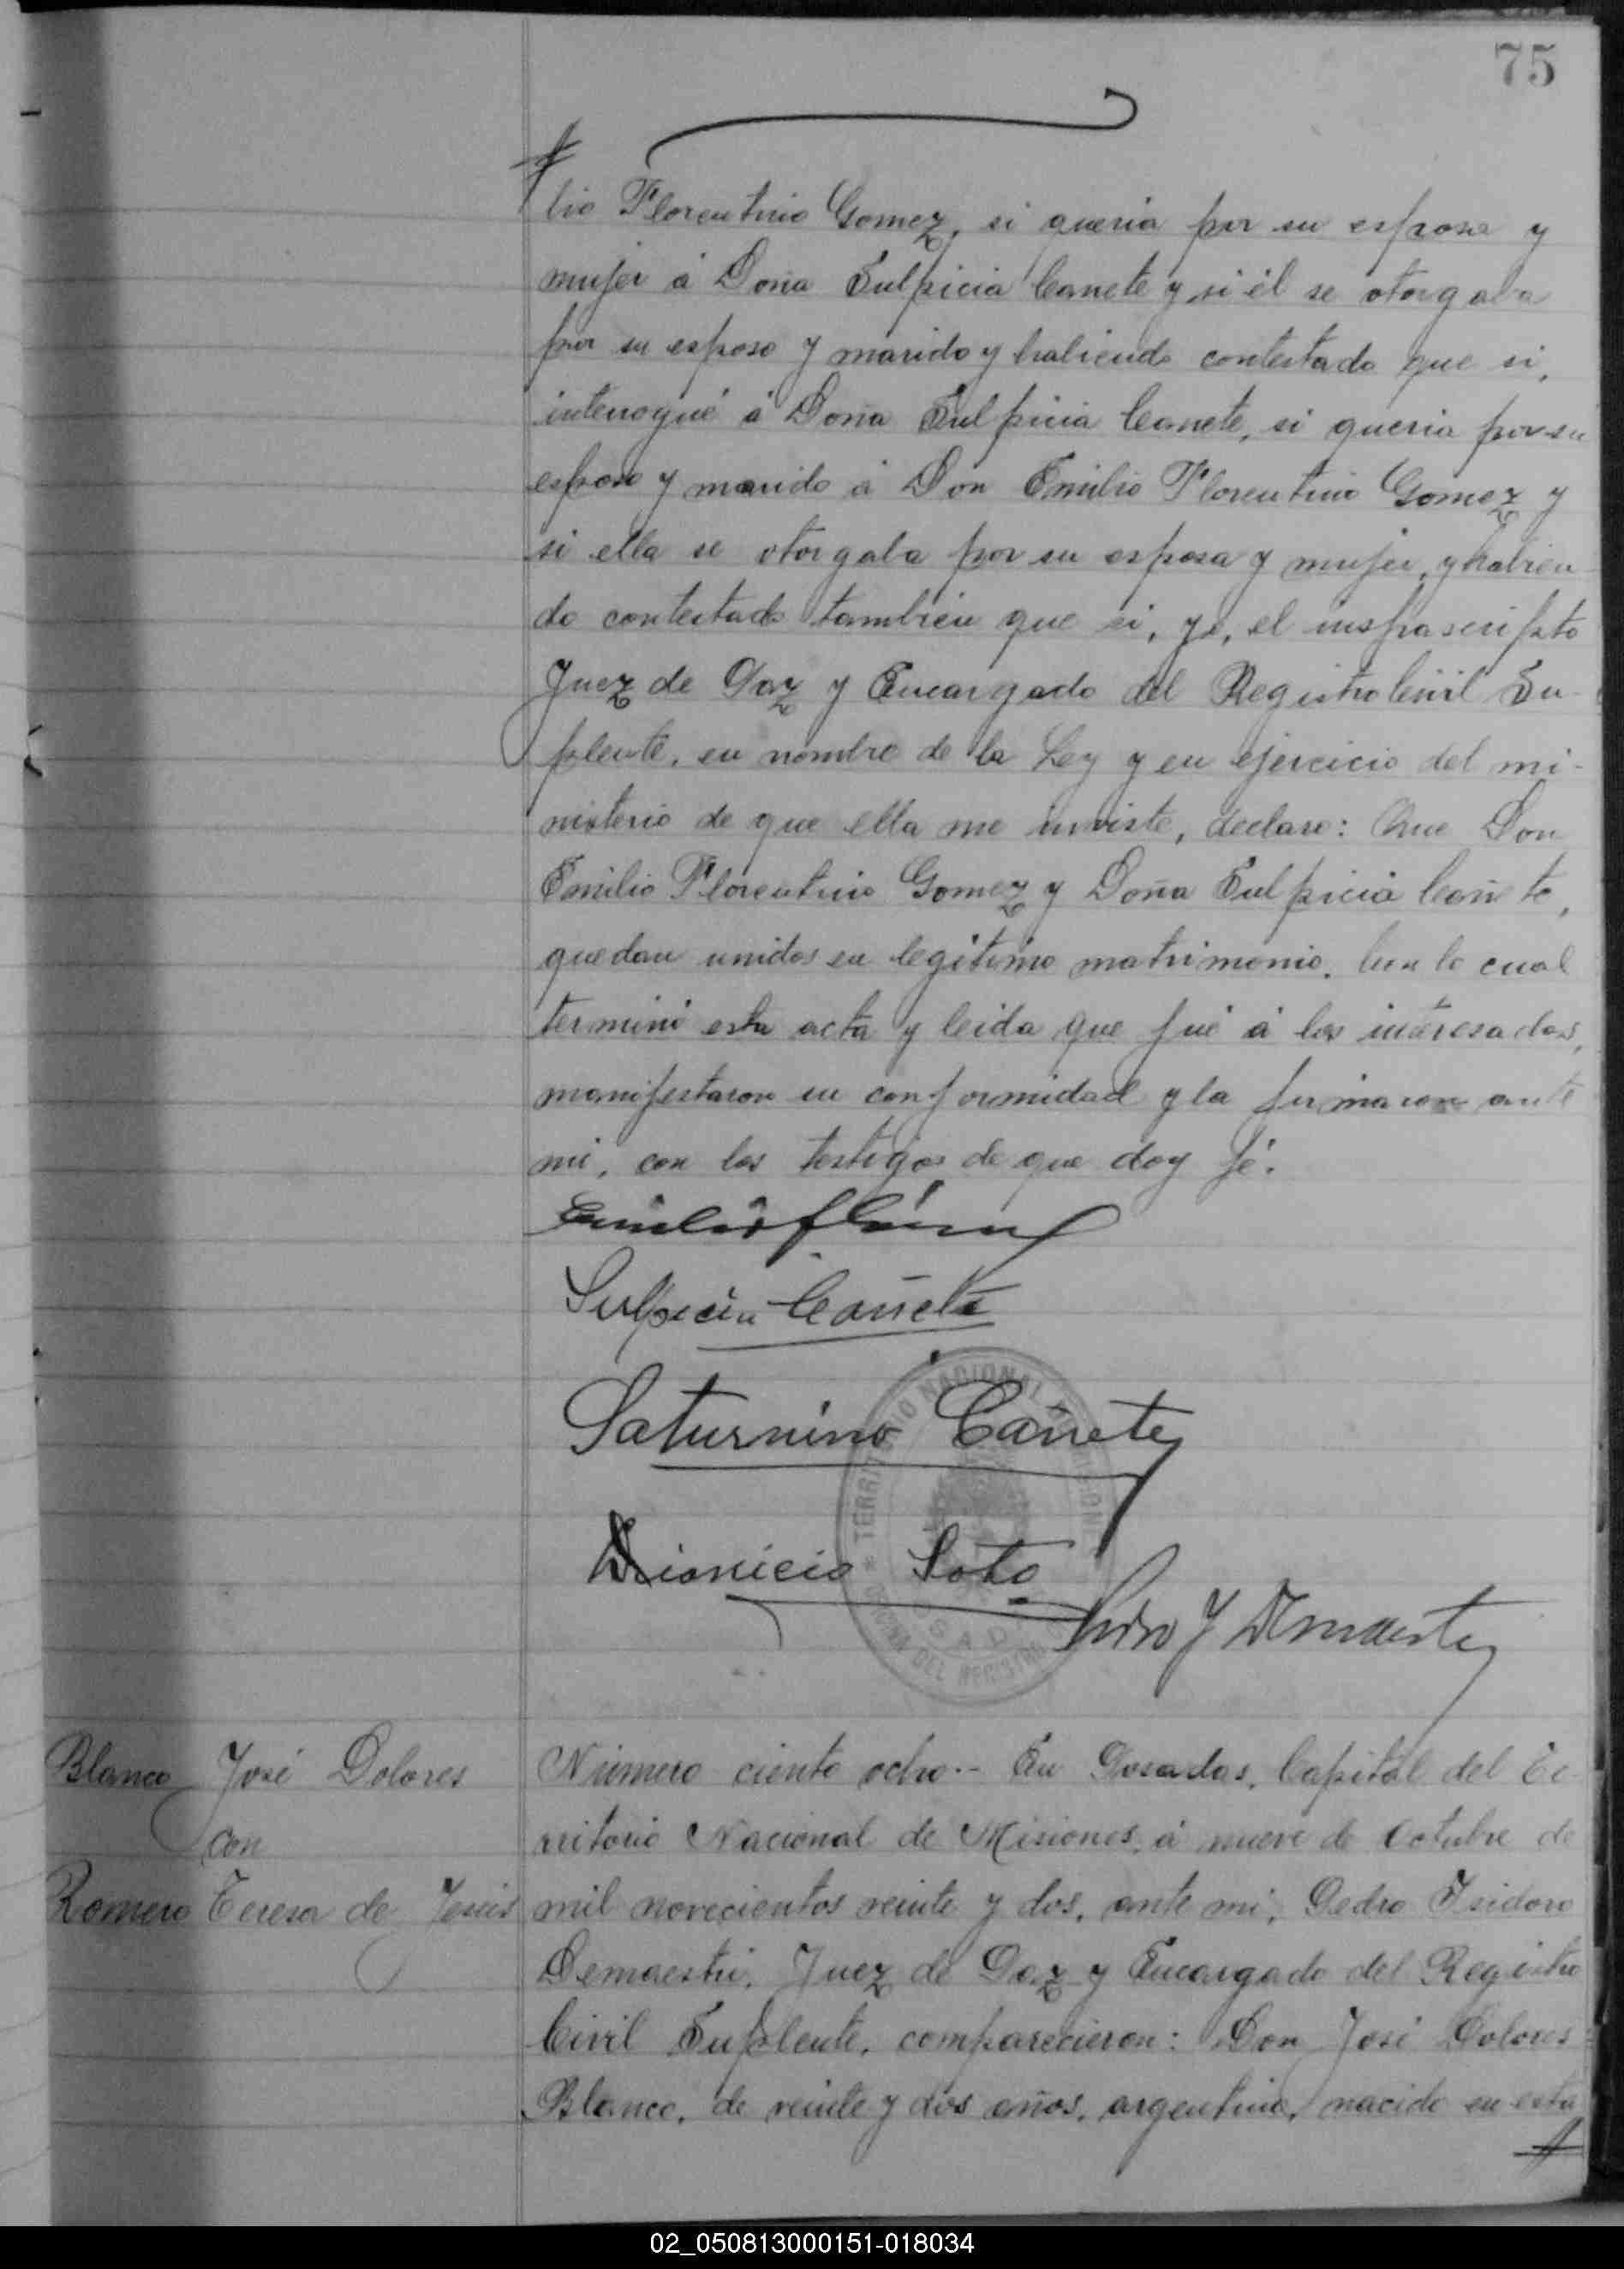 75
lio Florentino Gomez, si queria por su esposa y
mujer á Doña Sulpicia Canete y si él se otorgaba
por su esposo y marido y habiendo contestado que si,
interrogué á Doña Sulpicia Canete, si queria por su
esposo y marido á Don Emilio Florentino Gomez y
si ella se otorgaba por su esposa y mujer, y habien
do contestado tambien que si, yo, el infrascripto
Juez de Paz y Encargado del Registro Civil Su-
plente, en nombre de la Ley y en ejercicio del mi-
nisterio de que ella me inviste, declaro: Que Don
Emilio Florentino Gomez y Doña Sulpicia Cañete,
quedan unidos en legitimo matrimonio. Con lo cual
terminó esta acta y leida que fué á los interesados,
manifestaron su conformidad y la firmaron ante
mi, con los testigos de que doy fé.
Emilio
Sulpicia Cañete
Saturnino Cañete
Dionicio Soto
TERRITORIO NACIONAL DE MISIONES
OFICINA DEL REGISTRO
POSADAS
Pedro I Demaestri
Blanco José Dolores
con
Romero Teresa de Jesús
Número ciento ocho.- En Posadas, Capital del Te-
rritorio Nacional de Misiones, á nueve de Octubre de
mil novecientos veinte y dos, ante mi, Pedro Isidoro
Demaestri, Juez de Paz y Encargado del Registro
Civil Suplente, comparecieron: Don José Dolores
Blanco, de veinte y dos años, argentino, nacido en esta
02_050813000151-018034